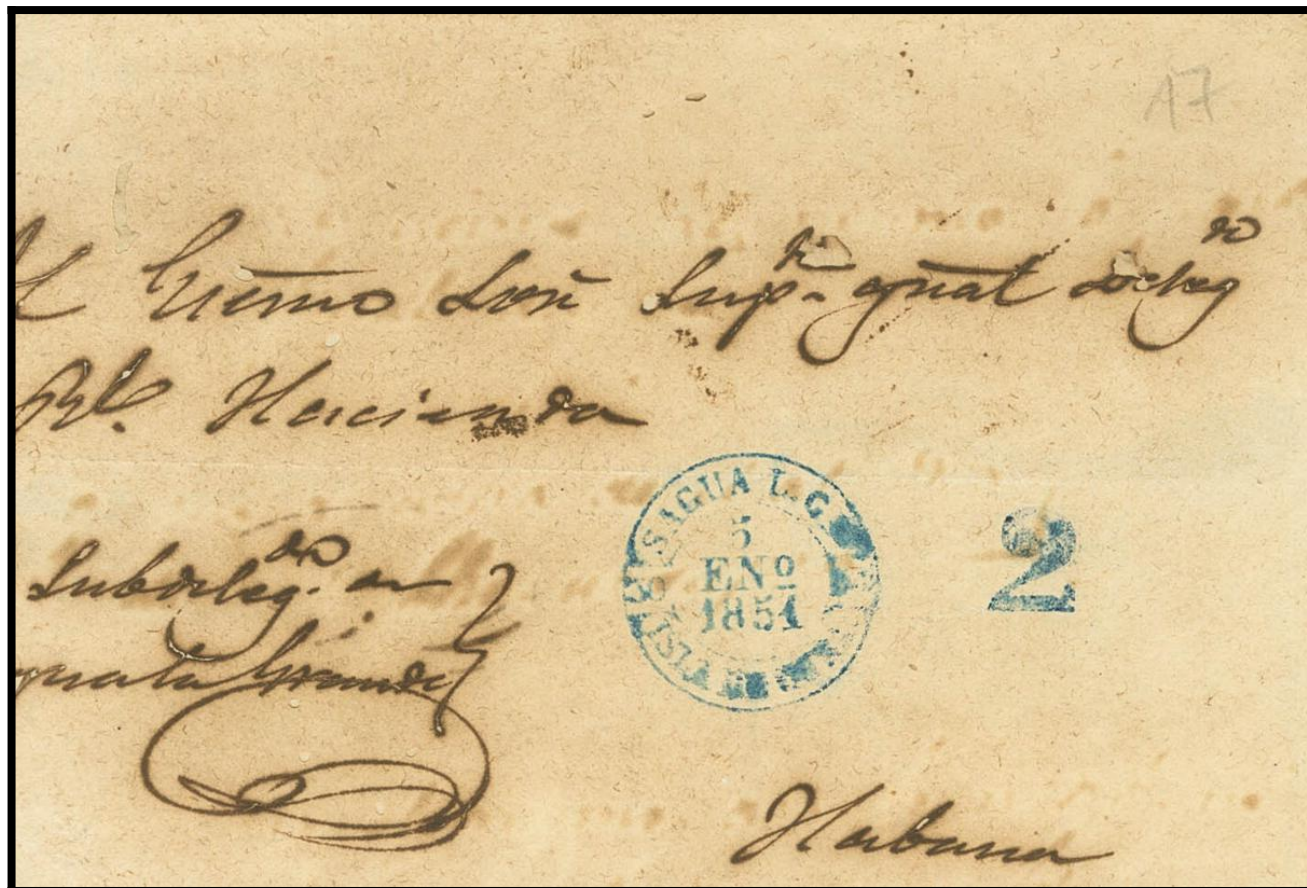 17
Al Exmo Sor Supte gñal deleg do
Rl. Hacienda
Subdeleg. do en
Sagua la Grande
SAGUA L.G.
5
ENº
1851
2
Habana